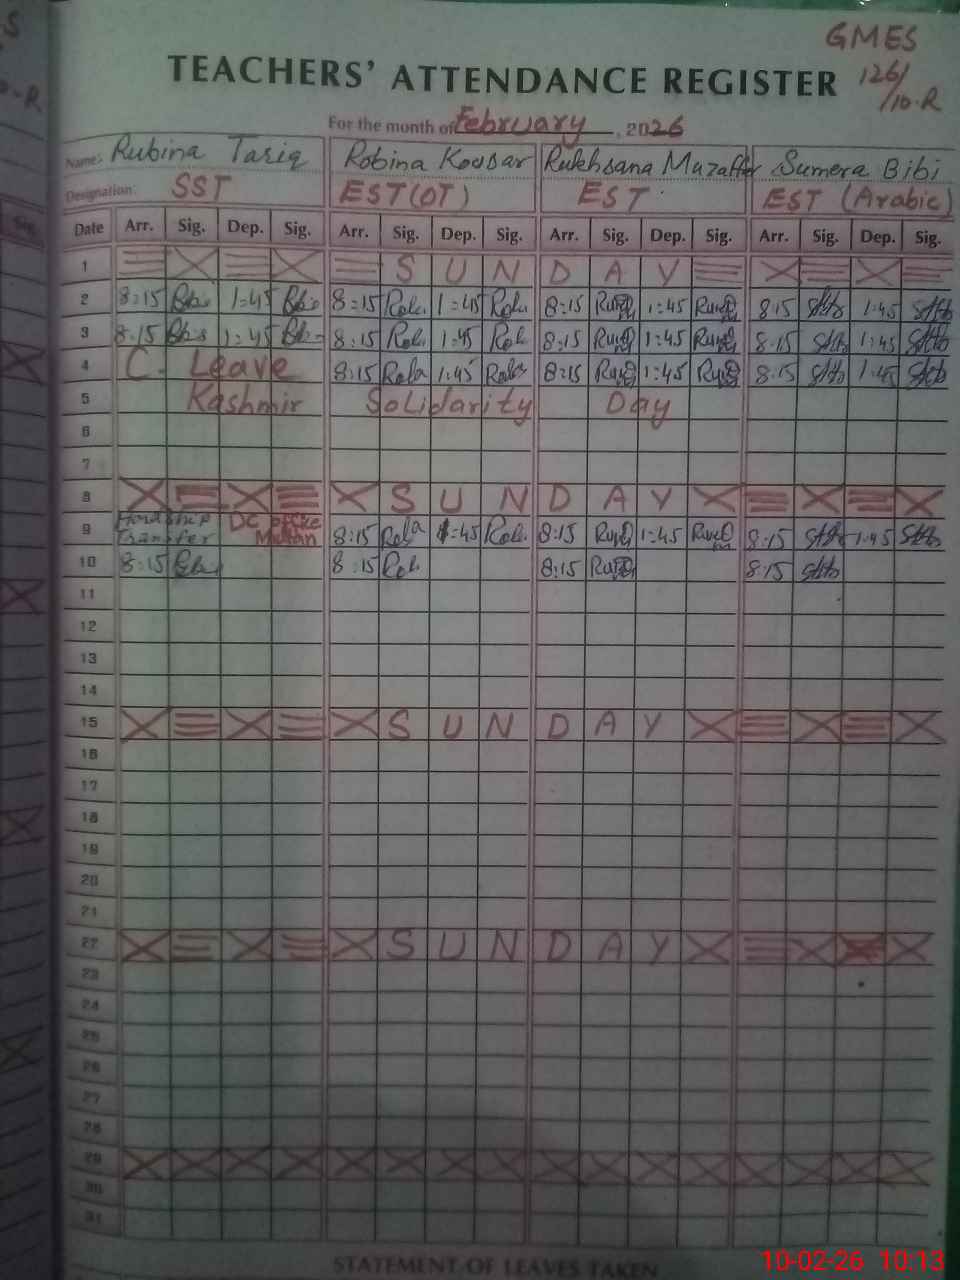 GMES
126/
10-R
TEACHERS' ATTENDANCE REGISTER
For the month of February, 2026
Name: Rubina Tariq Robina Kousar Rukhsana Muzaffer Sumera Bibi
Designation: SST EST(OT) EST EST (Arabic)
Date Arr. Sig. Dep. Sig. Arr. Sig. Dep. Sig. Arr. Sig. Dep. Sig. Arr. Sig. Dep. Sig.
1 S U N D A Y
2 8:15 1:45 8:15 1:45 8:15 1:45 8:15 1:45
3 8:15 1:45 8:15 1:45 8:15 1:45 8:15 1:45
4 C. Leave 8:15 1:45 8:15 1:45 8:15 1:45
5 Kashmir Solidarity Day
6
7
8 S U N D A Y
9 Hardship Transfer DC office Multan 8:15 1:45 8:15 1:45 8:15 1:45
10 8:15 8:15 8:15 8:15
11
12
13
14
15 S U N D A Y
16
17
18
19
20
21
22 S U N D A Y
23
24
25
26
27
28
29
30
31
STATEMENT OF LEAVES TAKEN
10-02-26 10:13